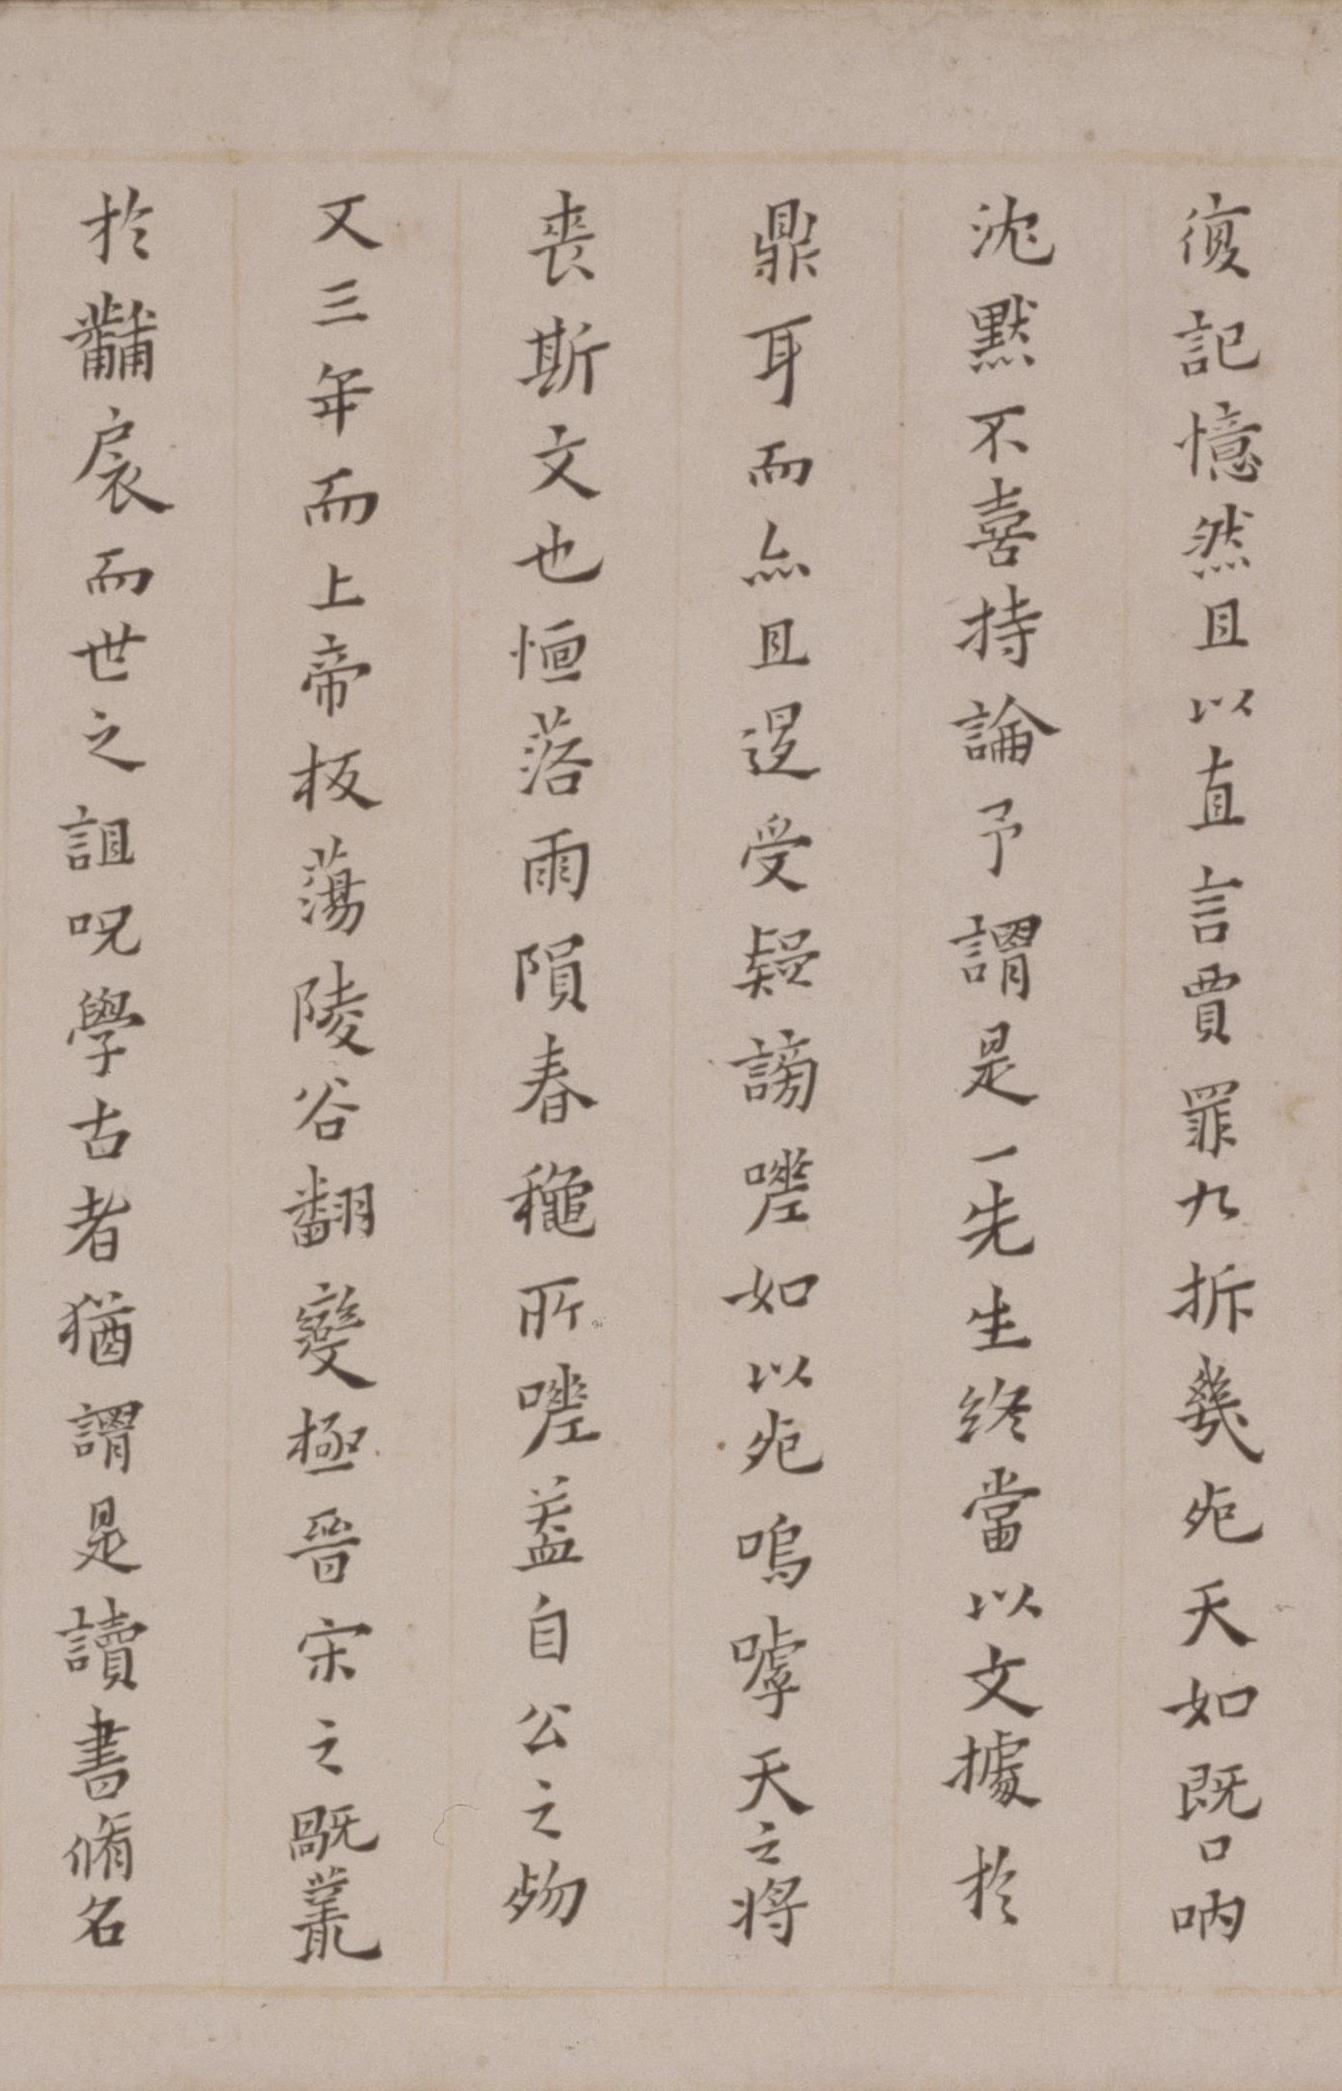 復記憶然且以直言賈罪九拆幾死天如既口吶
沈默不喜持論予謂是一先生終當以文據於
鼎耳而亦且遝受疑謗嗟如以死嗚嘑天之將
喪斯文也恒落雨隕春穐所嗟葢自公之歾
又三年而上帝板蕩陵谷翻變極晉宋之嘅叢
於黼扆而世之詛呪學古者猶謂是讀書脩名